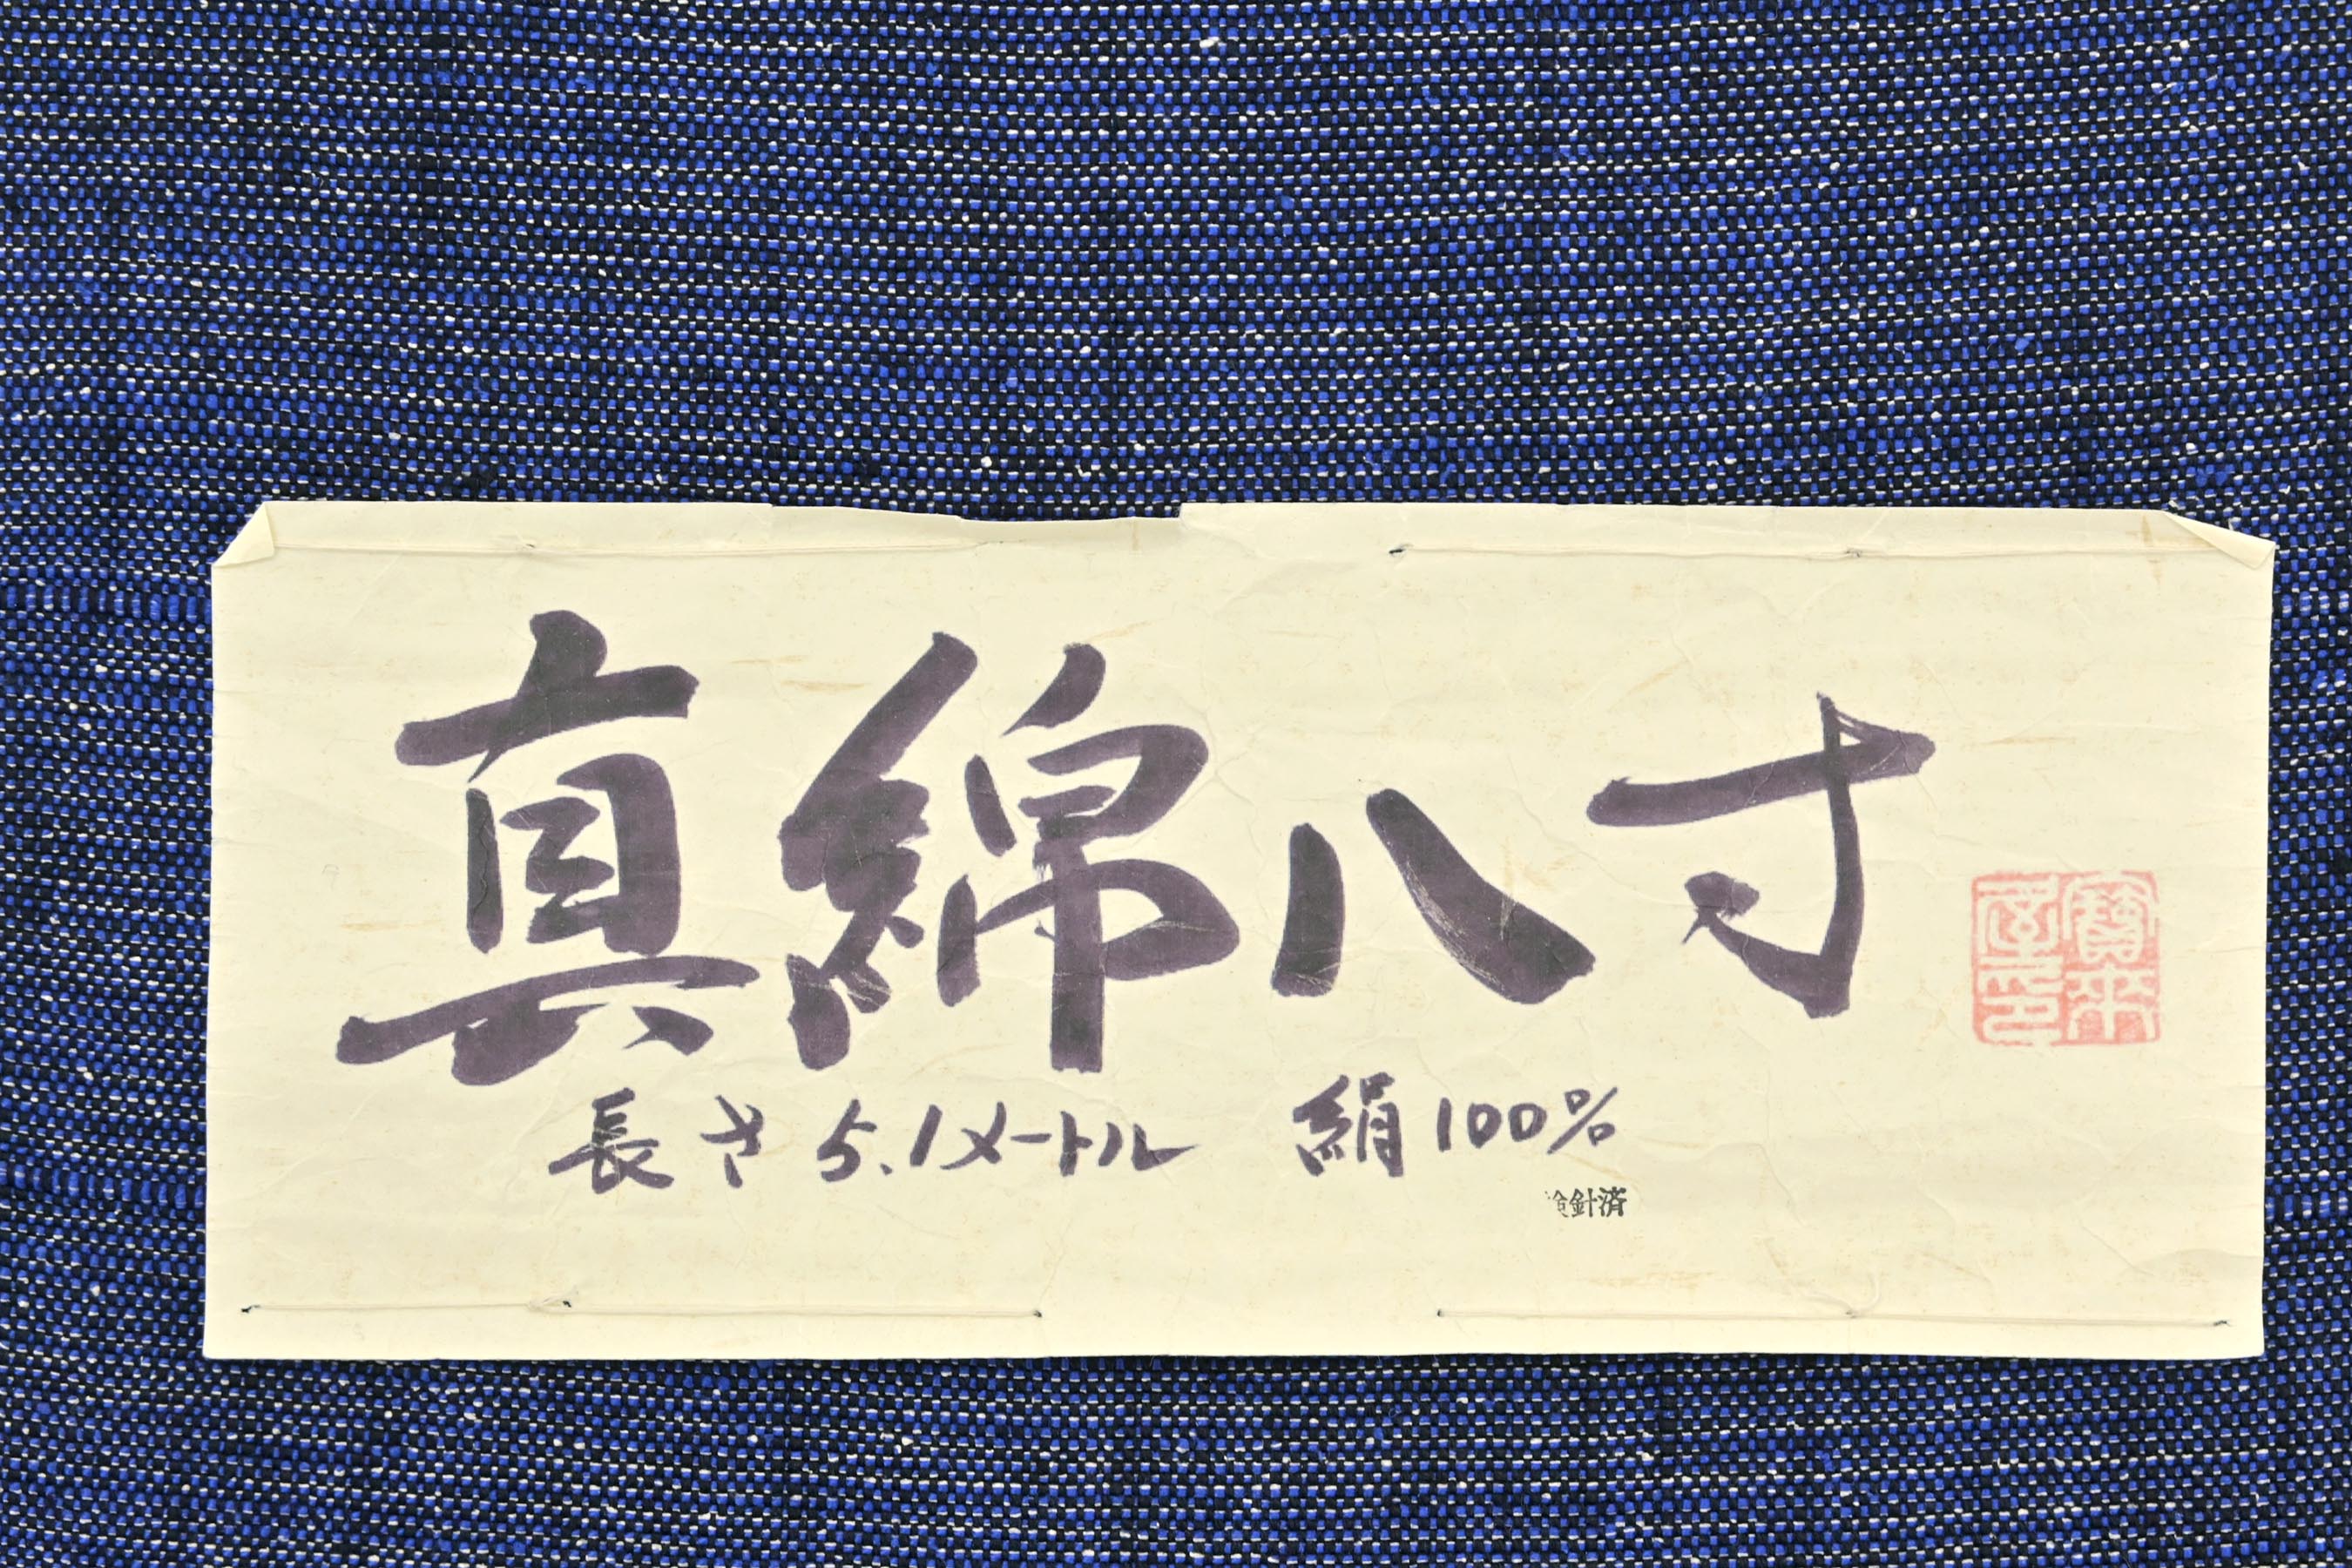 真綿八寸
長さ5.1メートル 絹100%
検針済